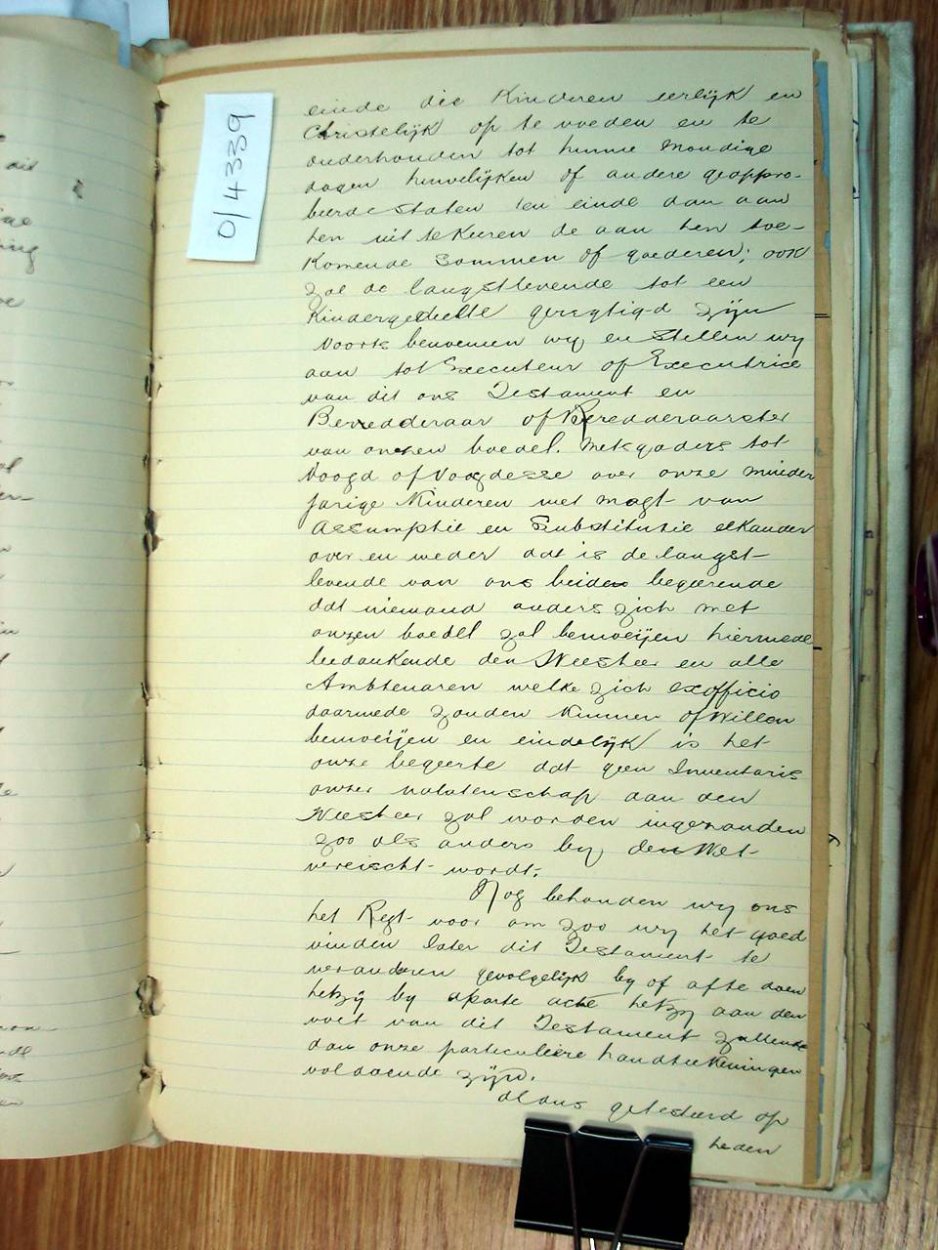 0/4339
einde die Kinderen eerlijk en
Christelijk op te voeden en te
onderhouden tot hunne mondige
dagen huwelijken of andere geappro-
beerde Staten ten einde dan aan
hen uit te Keeren de aan hen toe-
Komende Sommen of goederen; ook
zal de langstlevende tot een
Kindergedeelte geregtigd zijn
Voorts benoemen wij en Stellen wij
aan tot Executeur of Executrice
van dit ons Testament en
Beredderaar of Beredderaarster
van onzen boedel. Mitsgaders tot
Voogd of Voogdesse over onze minder
jarige Kinderen met magt van
Assumptie en Substitutie elkander
over en weder dat is de langst-
levende van ons beiden begeerende
dat niemand anders zich met
onzen boedel zal bemoeijen hiermede
bedankende den Weesheer en alle
Ambtenaren welke zich exofficio
daarmede zouden Kunnen of Willen
bemoeijen en eindelijk is het
onze begeerte dat geen Inventaris
onzer nalatenschap aan den
Weesheer zal worden ingezonden
zoo als anders by den Wet
vereischt wordt.
Nog behouden wij ons
het Regt voor om zoo wij het goed
vinden later dit Testament te
veranderen gevolgelijk by of afte doen
hetzij by aparte acte hetzij aan den
voet van dit Testament zullende
dan onze particuliere handteekeningen
voldoende zijn.
Aldus getesteerd op
heden